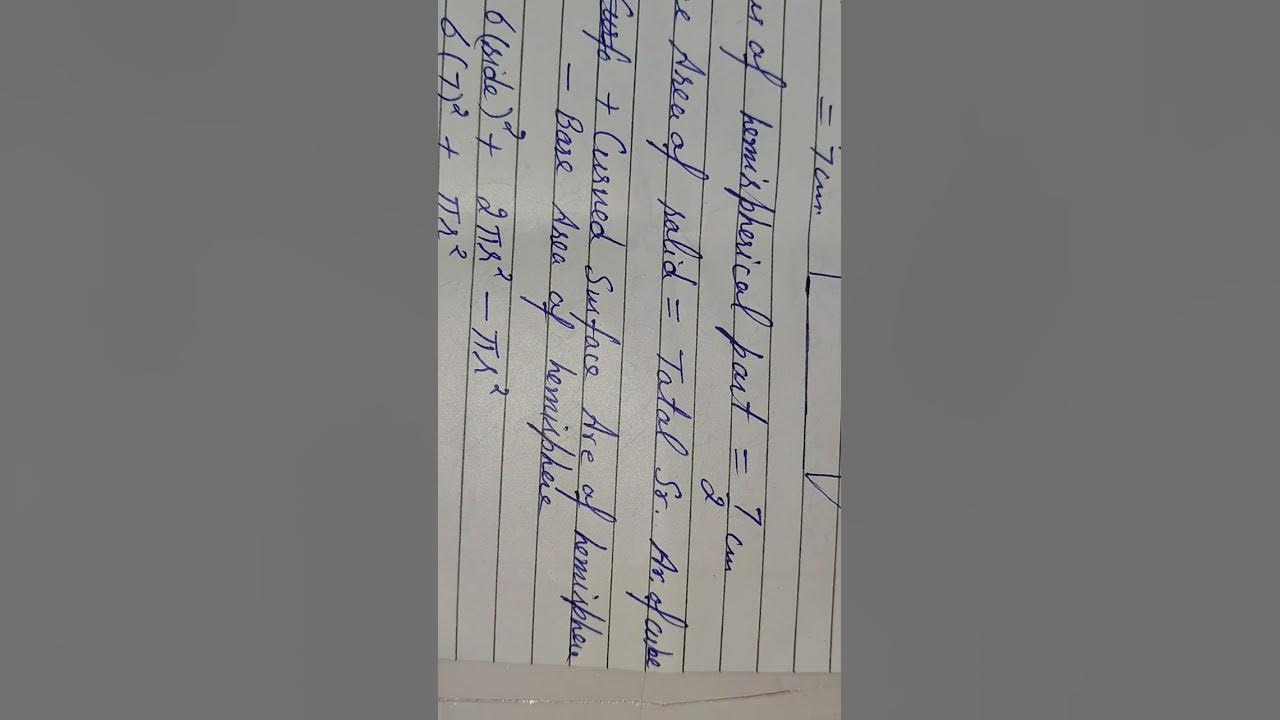 = 7cm
of hemispherical part = 7/2 cm
Area of solid = Tatal Sr. Ar. of cube
+ Curved Surface Are of hemisphere
- Base Area of hemisphere
6(side)² + 2πr² - πr²
6(7)² + πr²